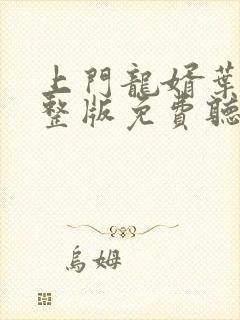 上門龍婿葉
整版免費聽
烏姆